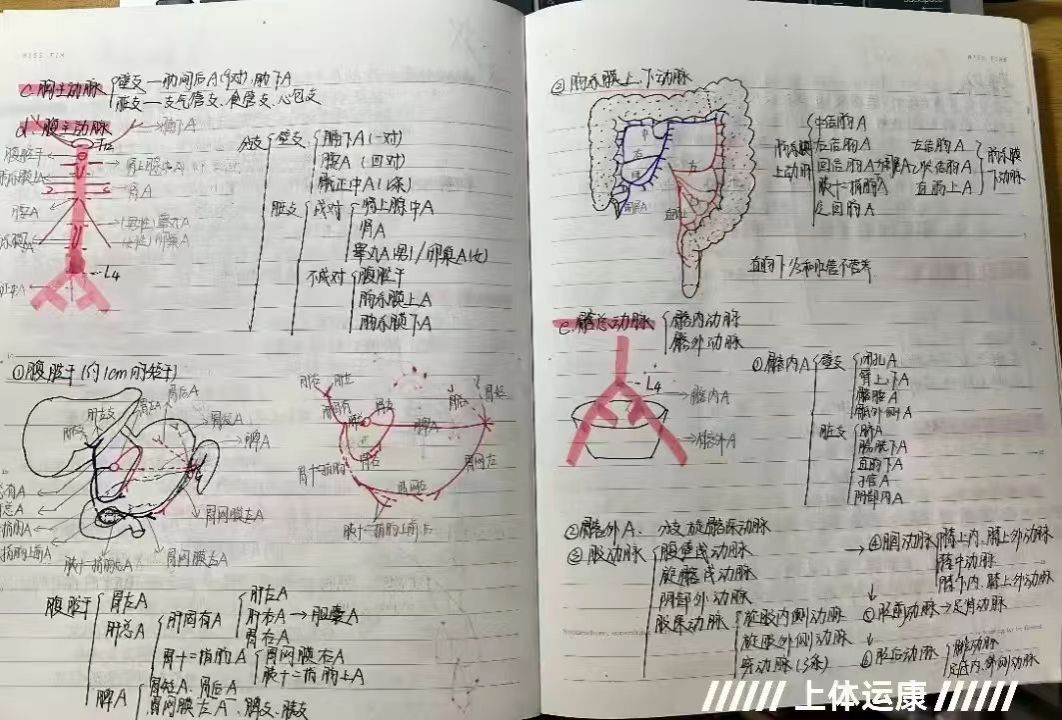 c.胸主动脉 壁支—肋间后A(9对).肋下A
脏支—支气管支、食管支、心包支
d.腹主动脉
膈下A
T12
腹腔干
肾上腺中A
肾A
腰A
(男性)睾丸A
(女性)卵巢A
L4
分支 壁支 膈下A(一对)
腰A(四对)
骶正中A(1条)
脏支 成对 肾上腺中A
肾A
睾丸A(男)/卵巢A(女)
不成对 腹腔干
肠系膜上A
肠系膜下A
①腹腔干(约1cm的短干)
胃后A
胃左A
肝左支
胃短A
脾A
胃网膜左A
胃网膜右A
胃短
脾A
胃右
胃网左
胃网右
腹腔干 胃左A
肝总A 肝固有A 肝左A
肝右A→胆囊A
胃右A
胃十二指肠A 胃网膜右A
胰十二指肠上A
脾A 胃短A、胃后A
胃网膜左A、脾支、胰支
②肠系膜上、下动脉
中
右
左
直肠上
肠系膜上动脉 中结肠A
右结肠A
回结肠A
胰十二指肠A
空回肠A
左结肠A
乙状结肠A
直肠上A
肠系膜下动脉
直肠下分和肛管不营养
e.髂总动脉 髂内动脉
髂外动脉
L4
髂内A
髂外A
①髂内A 壁支 闭孔A
臀上、下A
髂腰A
骶外侧A
脏支 脐A
膀胱下A
直肠下A
子宫A
阴部内A
②髂外A. 分支旋髂深动脉
③股动脉 腹壁浅动脉
旋髂浅动脉
阴部外动脉
股深动脉 旋股内侧动脉
旋股外侧动脉
穿动脉(3条)
→④腘动脉 膝上内、膝上外动脉
膝中动脉
膝下内、膝上外动脉
↓
⑤胫前动脉→足背动脉
↓
⑥胫后动脉 腓动脉
足底内、外侧动脉
上体运康